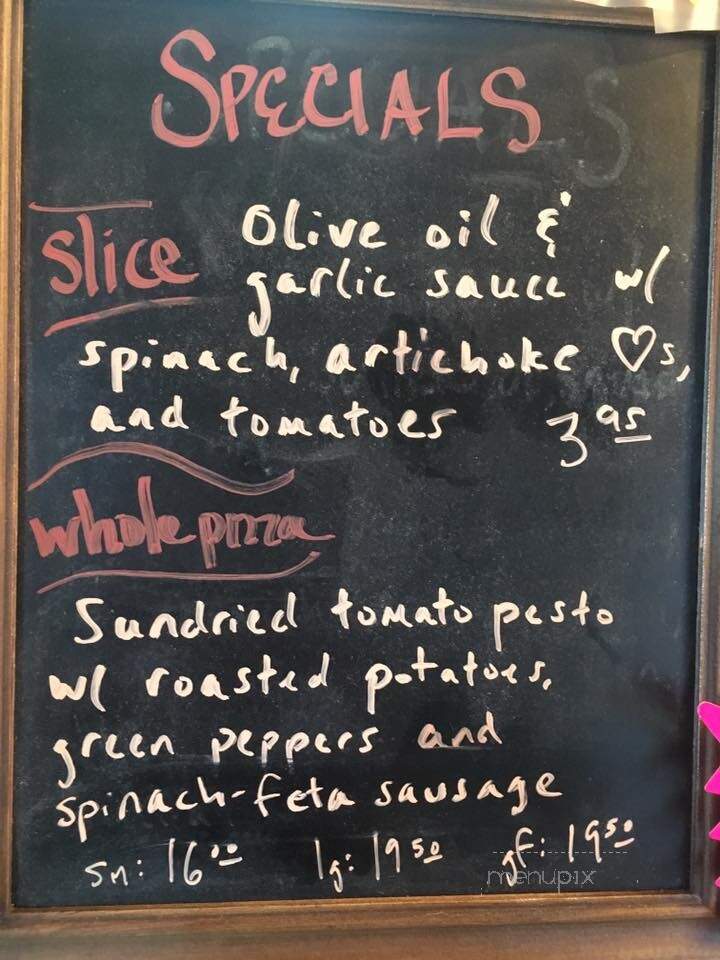 SPECIALS
slice Olive oil &
garlic sauce w/
spinach, artichoke ♡s,
and tomatoes 3 95
whole pizza
Sundried tomato pesto
w/ roasted potatoes,
green peppers and
spinach-feta sausage
sm: 16 00 lg: 19 50 gf: 19 50
menupix